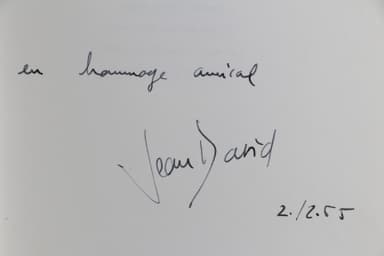 en hommage amical
Jean David
2./2.55